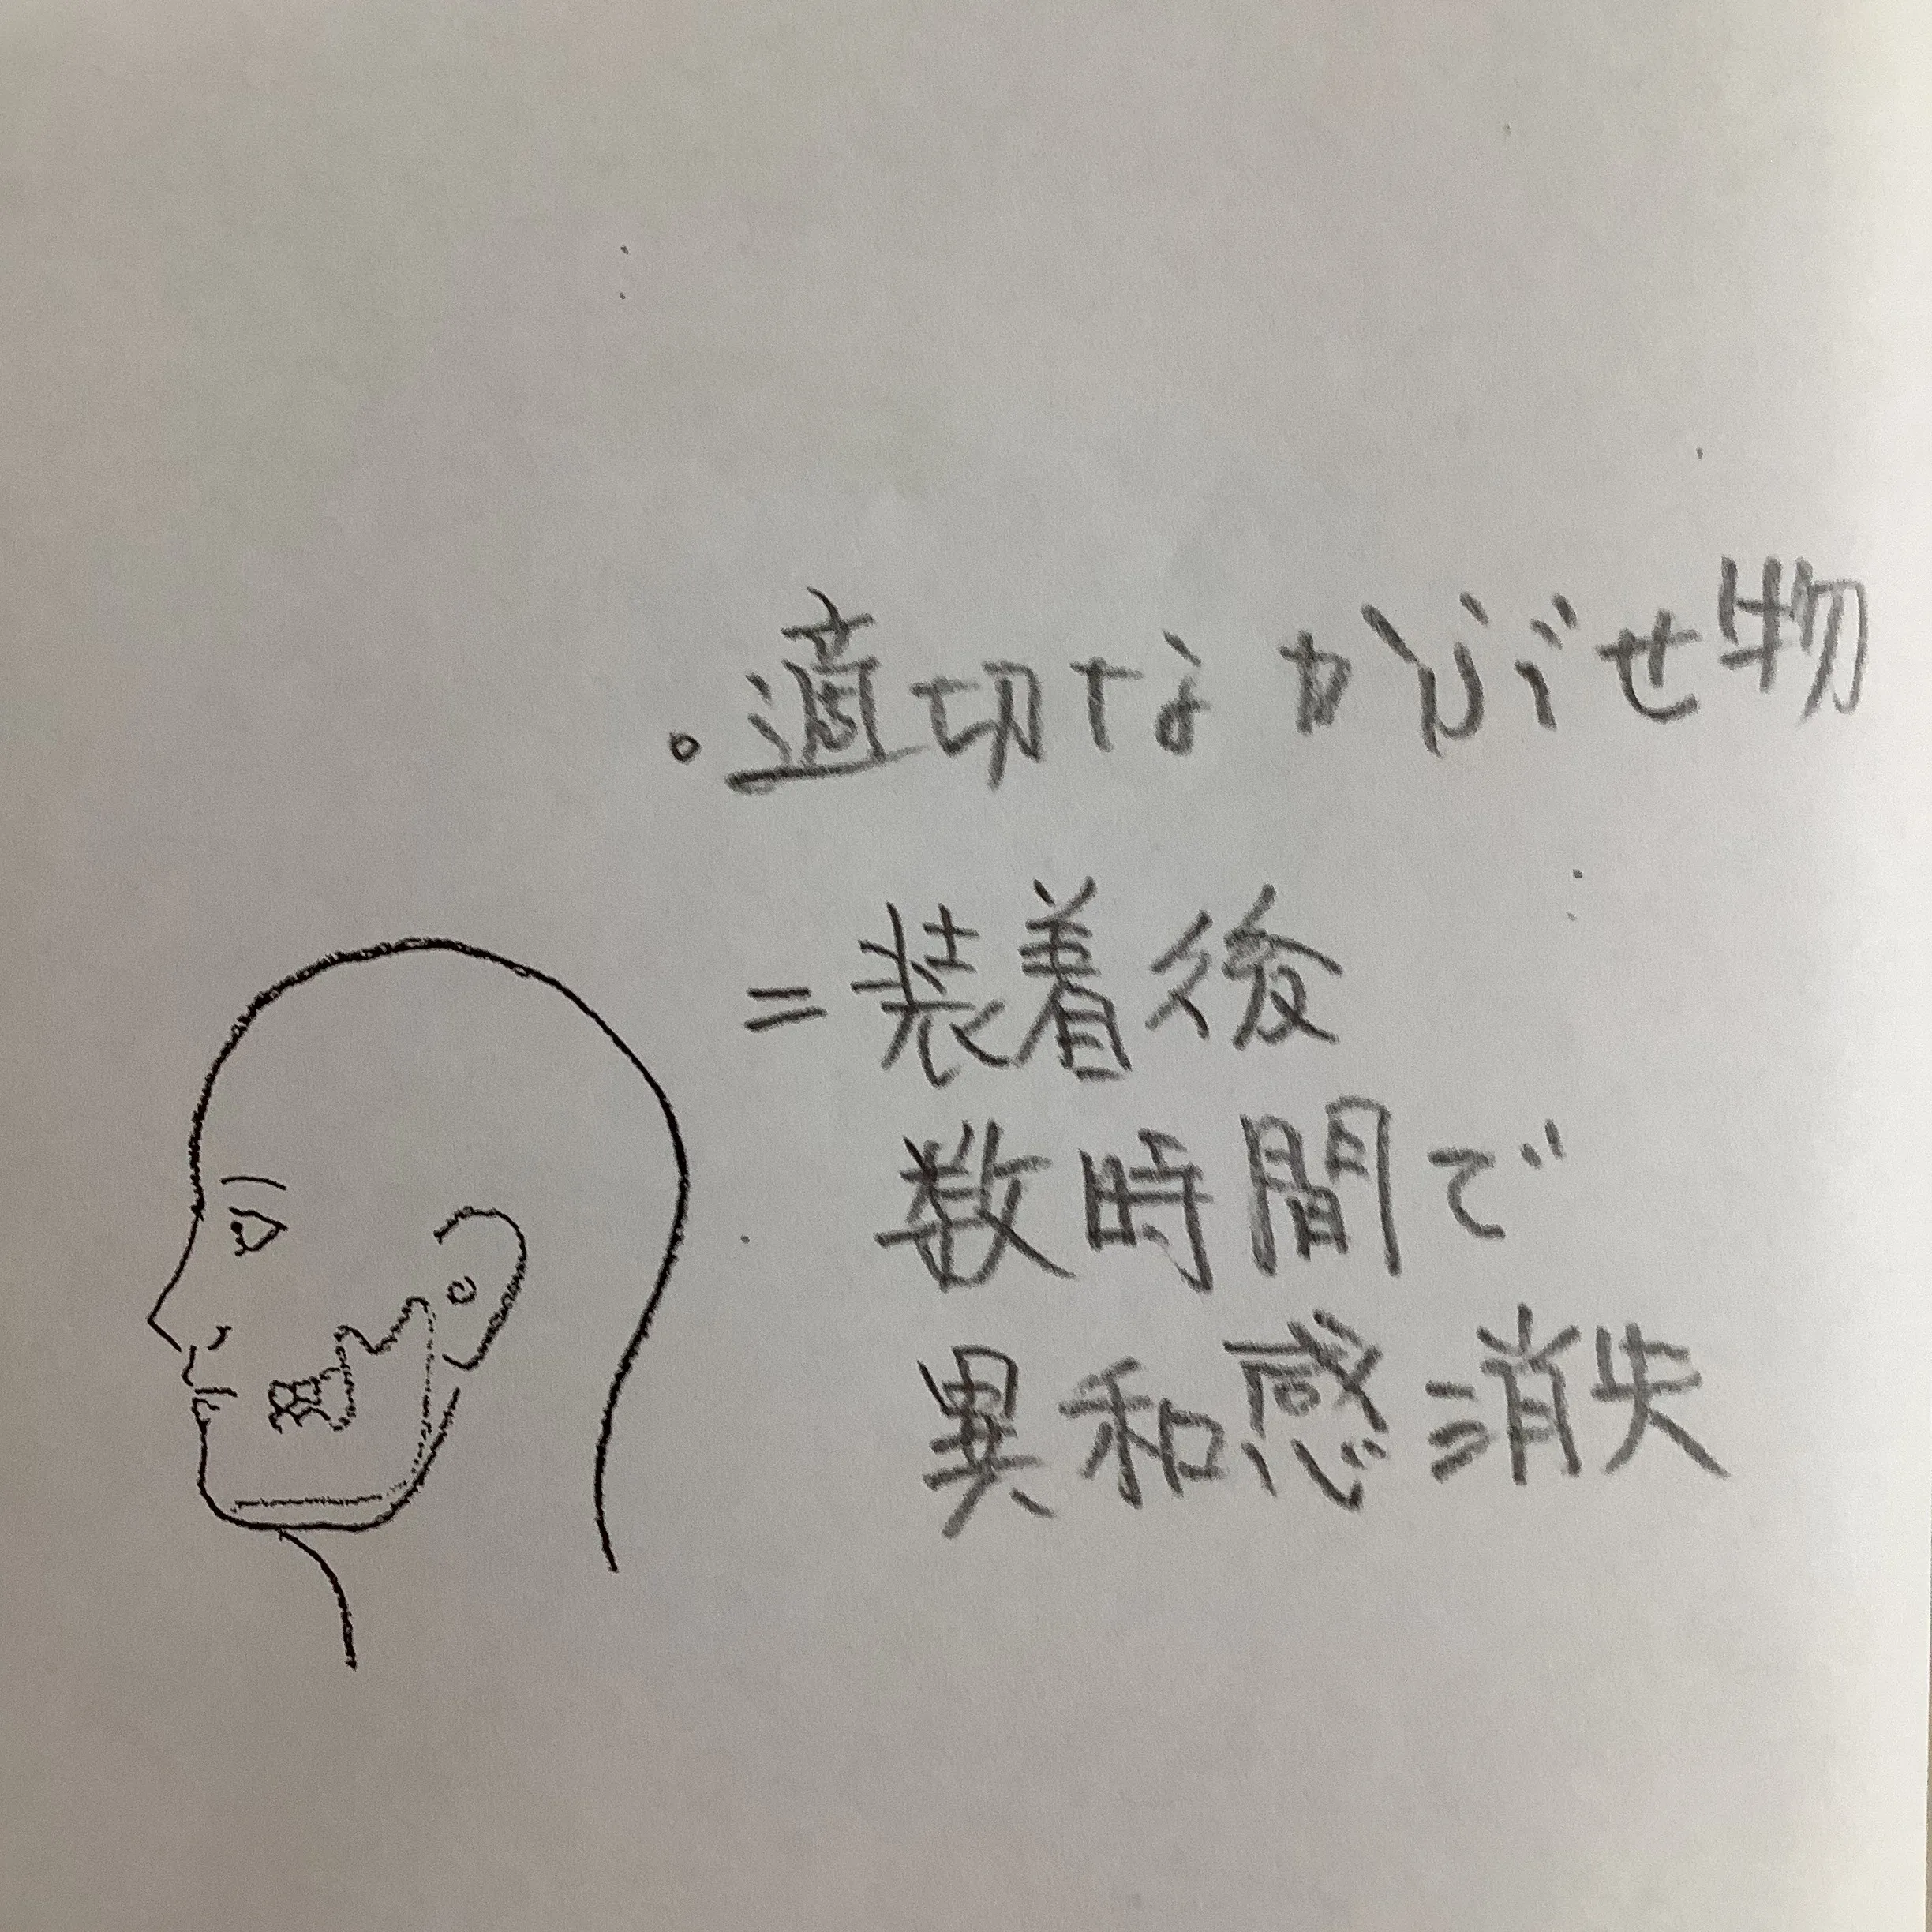 。適切なかぶせ物
=装着後
数時間で
異和感消失